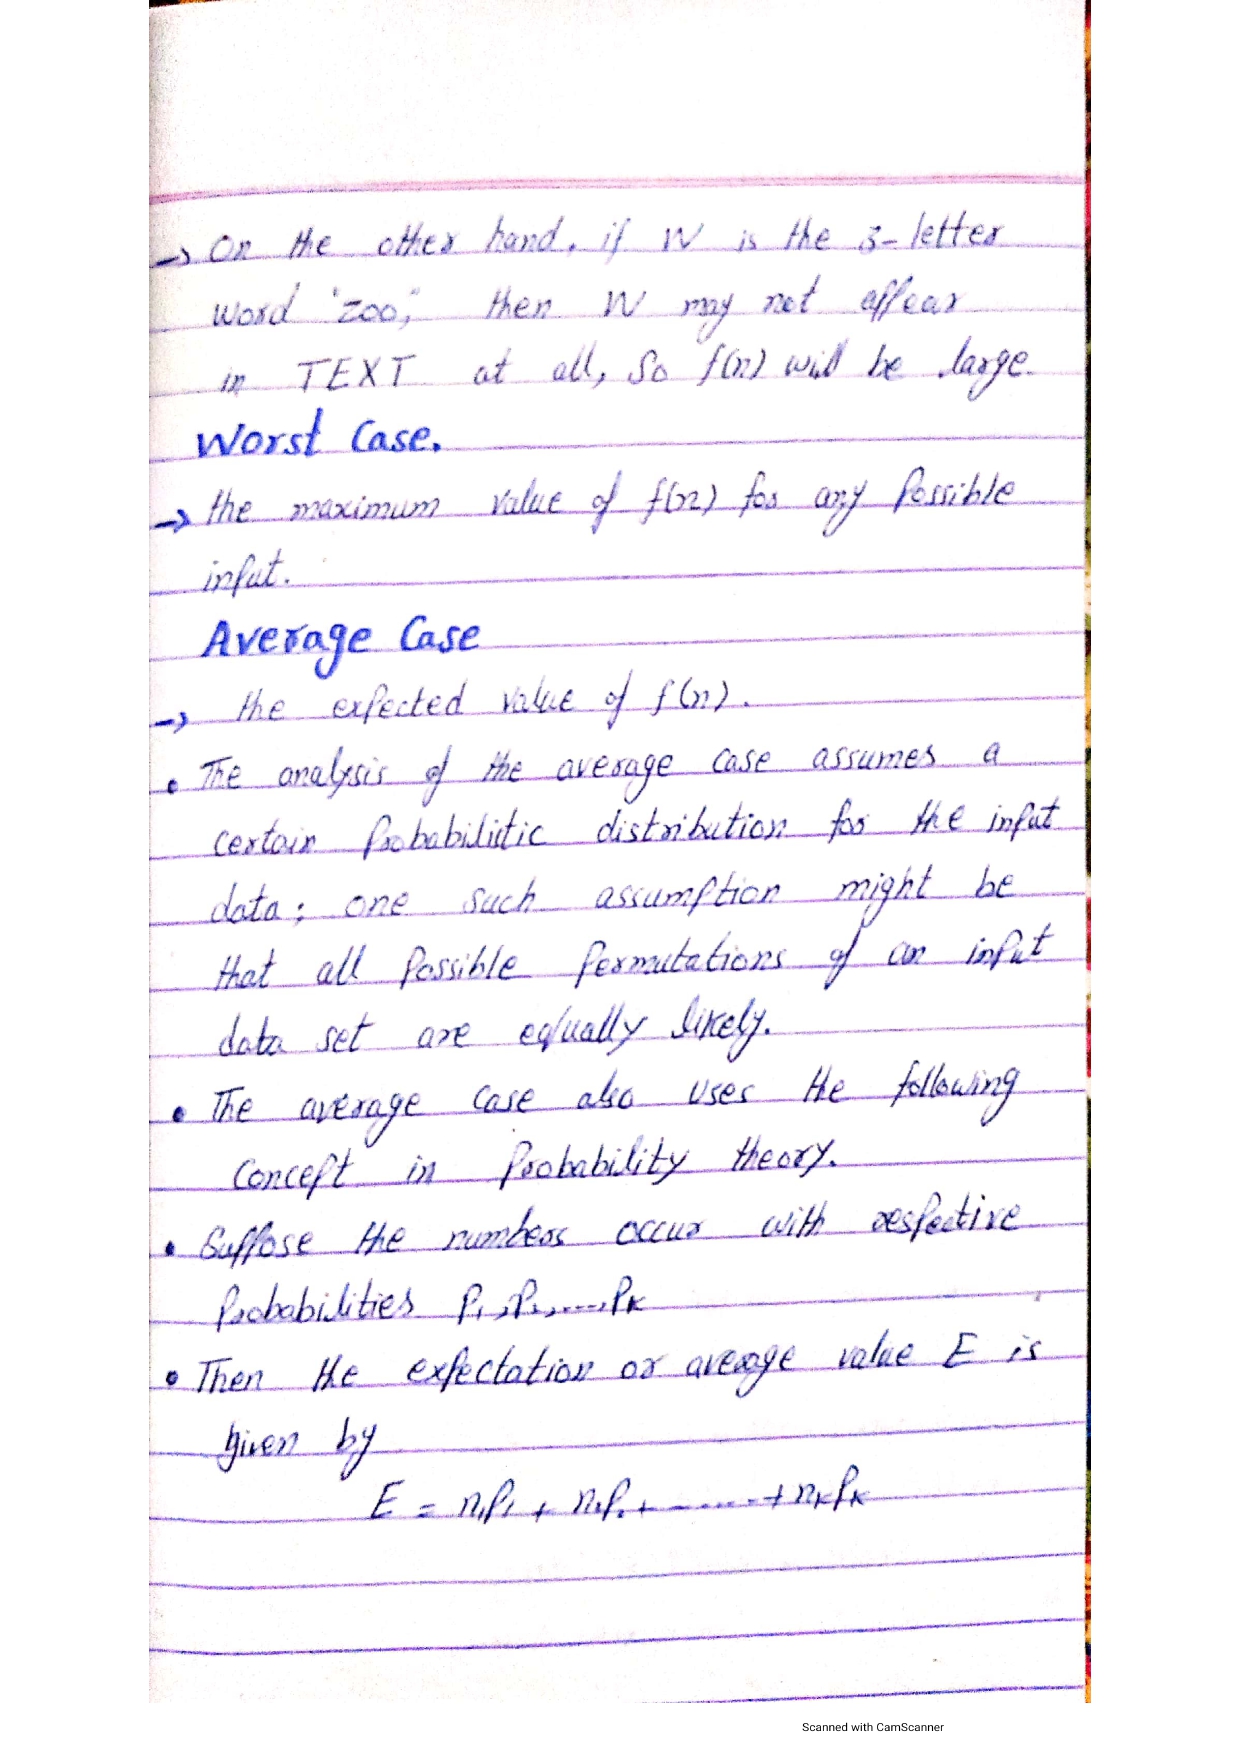 → On the other hand, if W is the 3-letter
word "zoo," then W may not appear
in TEXT at all, So f(n) will be large.
Worst Case.
→ the maximum value of f(n) for any possible
input.
Average Case
→ the expected value of f(n).
• The analysis of the average case assumes a
certain probabilistic distribution for the input
data; one such assumption might be
that all possible permutations of an input
data set are equally likely.
• The average case also uses the following
Concept in probability theory.
• Suppose the numbers occur with respective
probabilities P₁, P₂, ...., Pₖ
• Then the expectation or average value E is
given by
E = n₁P₁ + n₂P₂ + ------ + nₖPₖ
Scanned with CamScanner